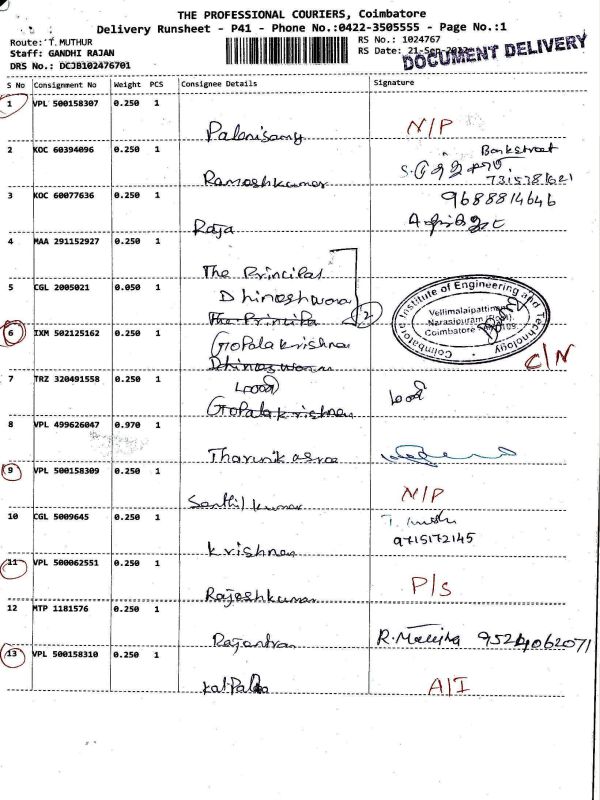 THE PROFESSIONAL COURIERS, Coimbatore
Delivery Runsheet - P41 - Phone No.:0422-3505555 - Page No.:1
Route: T.MUTHUR
RS No.: 1024767
Staff: GANDHI RAJAN
RS Date: 21-Sep-
DOCUMENT DELIVERY
DRS No.: DCJB102476701
S No Consignment No Weight PCS Consignee Details Signature
1 VPL 500158307 0.250 1
Palanisamy N/P
2 KOC 60394096 0.250 1
Rameshkumar
7315781621
3 KOC 60077636 0.250 1
9688814646
Raja
4 MAA 291152927 0.250 1
The Principal
5 CGL 2005021 0.050 1
Dhineshwara
The Principa
2
Coimbatore Institute of Engineering and Technology
Vellimalaipattinam
Narasipuram (Post),
Coimbatore 109.
6 IXM 502125162 0.250 1
Gopala krishna
C/N
7 TRZ 320491558 0.250 1
Gopala krishnan
8 VPL 499626047 0.970 1
9 VPL 500158309 0.250 1
N/P
Senthil kumar
10 CGL 5009645 0.250 1
9715172145
krishnan
11 VPL 500062551 0.250 1
P/s
Rajeshkumar
12 MTP 1181576 0.250 1
R. 9524062071
13 VPL 500158310 0.250 1
A/I